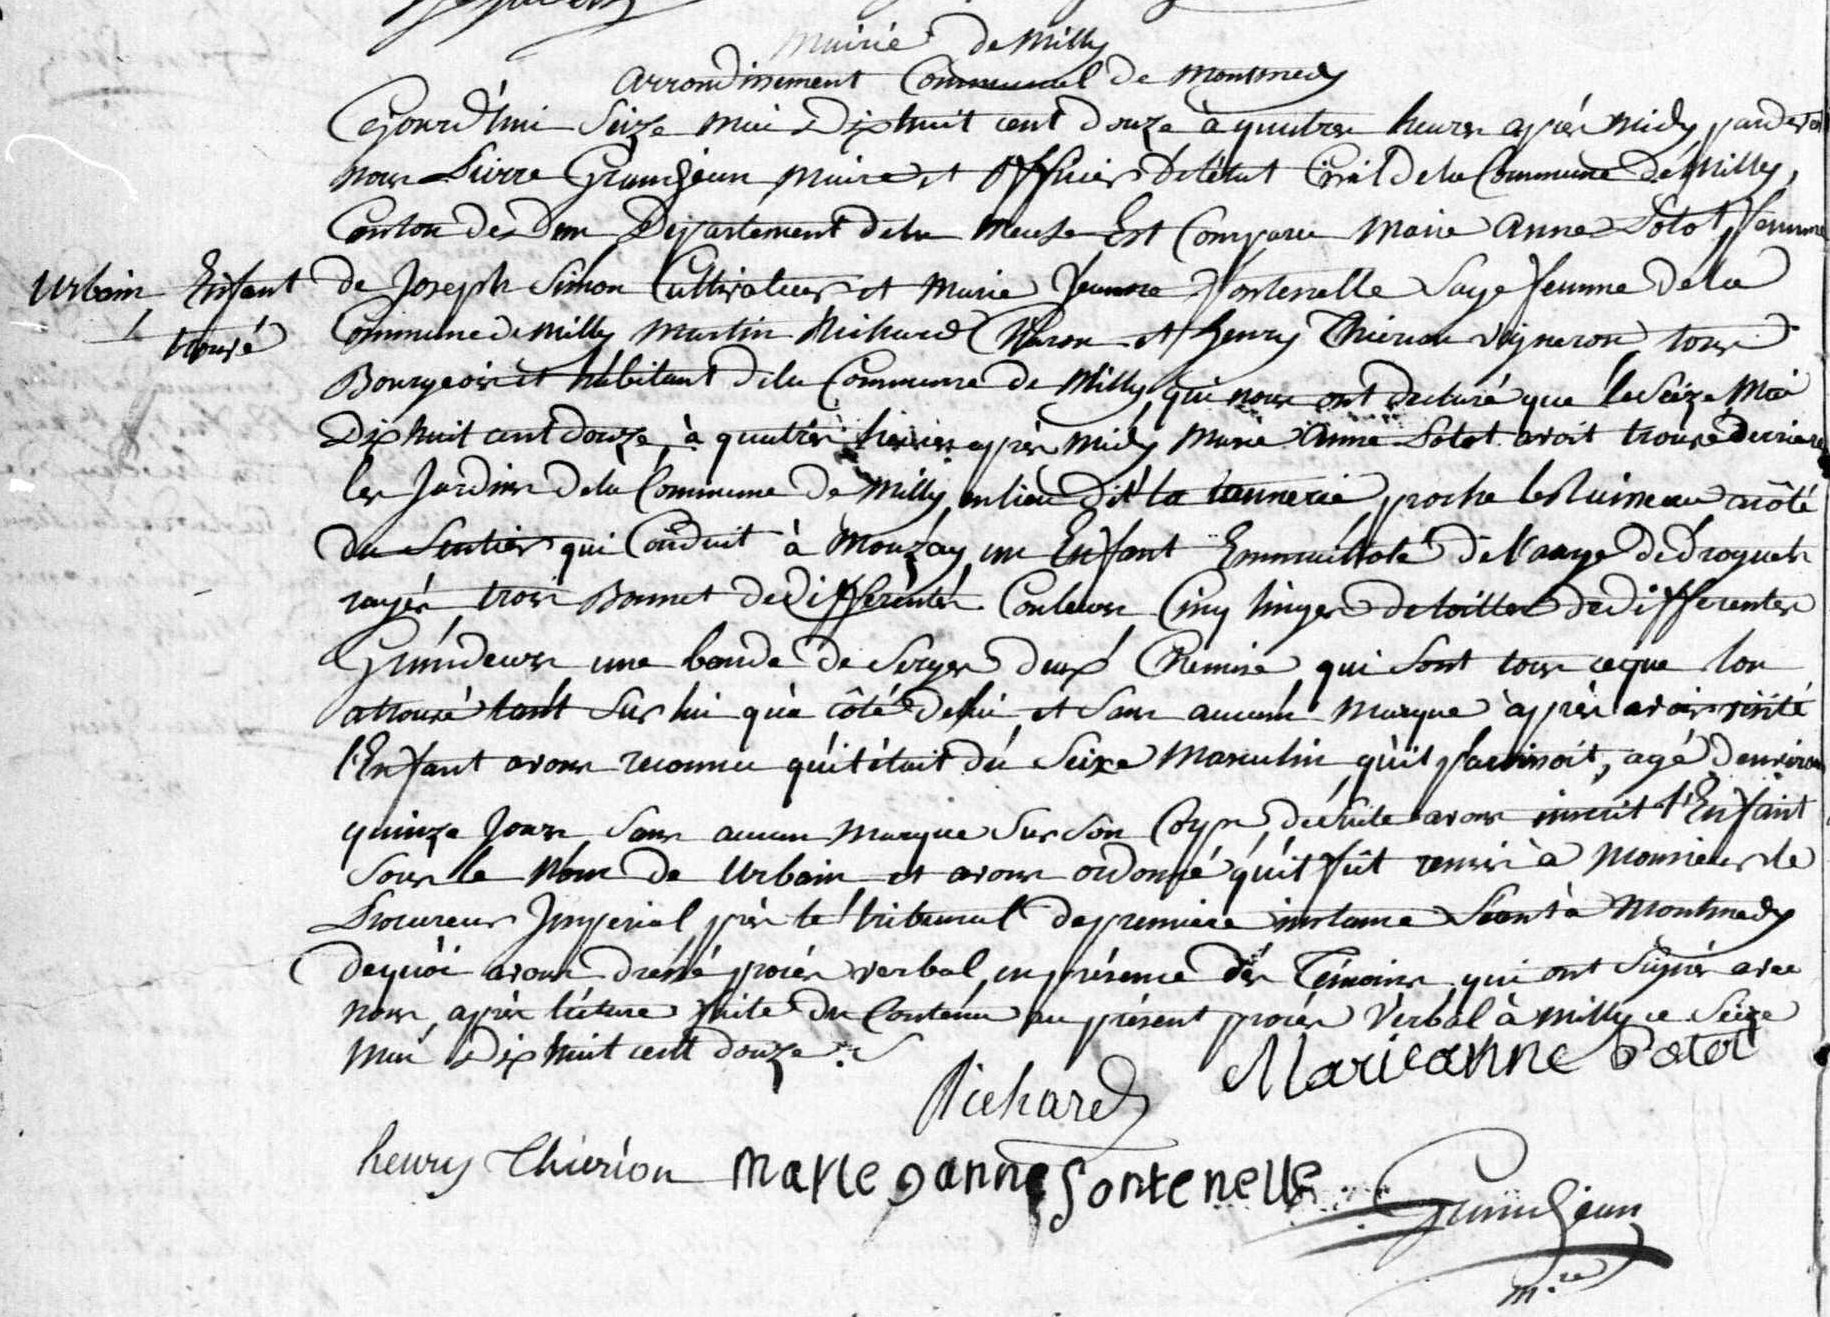 Mairie de Milly
arrondissement Communal de Montmedy
Cejourd'hui Seize Mai Dix huit cent douze à quatres heures après Midy pardevant
nous Pierre Grandjean Maire et Officier Del'état Civil dela Commune de Milly,
Canton de Dun Département dela Meuse Est Comparu Marie Anne Potot, femme
de Joseph Simon Cultivateur et Marie Jeanne Fontenelle Sage femme dela
Commune de Milly Martin Richard Charon et henry Thierion vigneron tous
Bourgeois et habitant dela Commune de Milly, qui nous ont declaré que le Seize Mai
Dix huit cent douze, à quatres heures après Midy Marie Anne Potot avoit trouvé derriere
les Jardins dela Commune de Milly, en lieu dit la tannerie, proche le Ruisseau acôté
du Sentier qui Conduit à Mouzay un Enfant Emmaillotté de lange de droguets
rayés, trois Bonnet de differentes Couleurs Cinq linges de toilles de differentes
Grandeurs une bande de Serges deux Chemise, qui sont tous ceque lon
a trouvé tant Sur lui qu'a côté de lui et Sans aucune Marque après avoir visité
l'Enfant avons reconnu qu'il était du Seixe Masculin qu'il paroissoit, agé denviron
quinze Jours Sans aucun Marque Sur Son Corps, desuite avons inscrit l'Enfant
Sous le Nom de Urbain et avons ordonné qu'il fût remis à Monsieur le
Procureur Imperial près le tribunal de premiere instance Séant à Montmedy
dequoi avons dressé procès verbal, en présence des Témoins qui ont Signés avec
nous, après lecture faite du Contenu au présent procès Verbal à Milly ce Seize
Mai Dix huit cent douze.
Urbain Enfant
trouvé
Richard Marieanne Potot
henry Thierion Marie Janne fontenelle
Grandjean
m.re